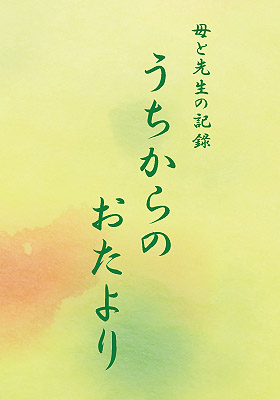 母と先生の記録
うちからの
おたより